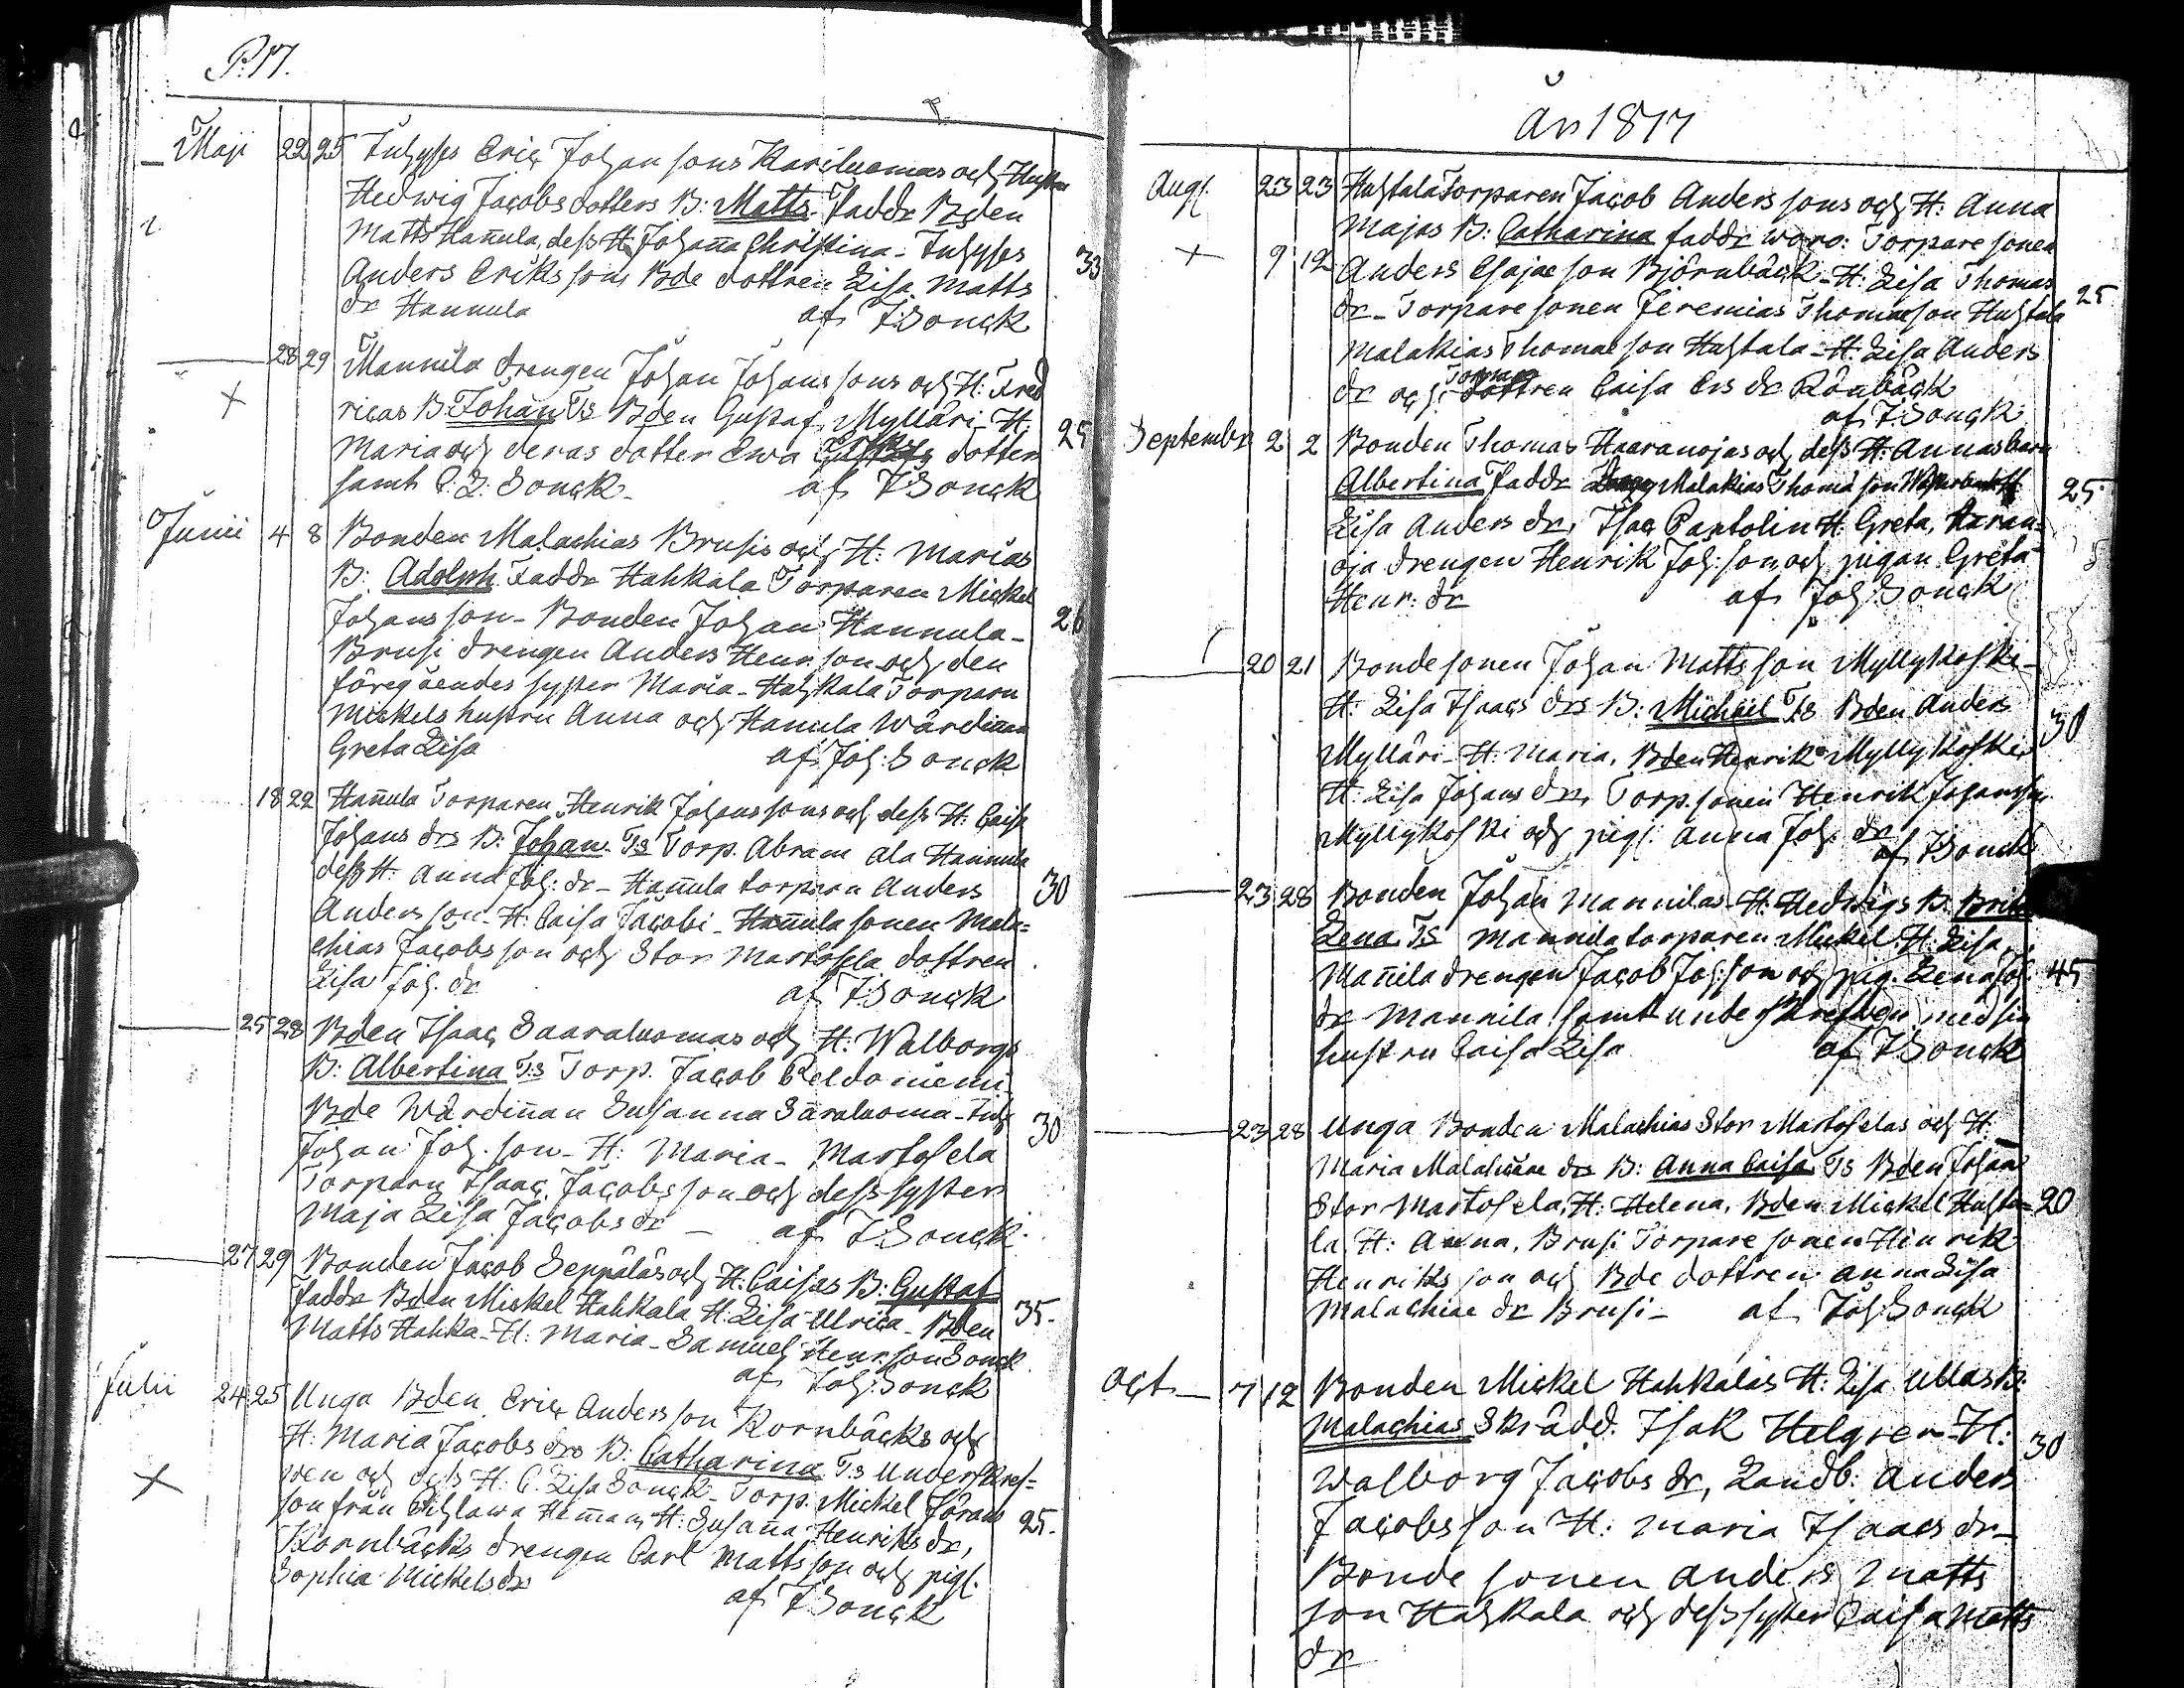 P. 17.
Maji 22 25 Inhyses Eric Johan sons Kariluomas och Hustru
Hedwig Jacobs dotters B: Matts Faddr Bden
Matts Hannula, dess H. Johanna Christina - Inhyses
Anders Eriks son, Bde dottren Lisa Matts 33
dr Hannula af J:Sonck
28 29 Mannila drengen Johan Johans sons och H: Fred
ricas B. Johan Ts Bden Gustaf Mylläri - H.
Maria och deras dotter Ewa dotter 25
samt C. L. Sonck - af J Sonck
Junii 4 8 Bonden Malachias Brusis och H: Marias
B: Adolph Faddr Hahkala Torparen Mickel
Johans son - Bonden Johan Hannula - 26
Brusi drengen Anders Henr. son och den
föregåendes syster Maria - Hahkala Torparn
Mickels hustru Anna och Hanula Wärdinnan
Greta Lisa af Joh: Sonck
18 22 Hannula Torparen Henrik Johans sons och dess H: Caisa
Johans drs B: Johan Ts Torp. Abram Ala Hannula
dess H. Anna Joh: dr - Hannula torparn Anders 30
Anders son - H. Caisa Jacobi - Hannula sonen Mala=
chias Jacobs son och Stor Martosela dottren
Lisa Joh. dr af J:Sonck
25 28 Bden Isaac Saaraluomas och H: Walborgs
B: Albertina Ts Torp. Jacob Peldoniemi
Bde Wärdinnan Susanna Säraluoma - Inh
Johan Joh. son - H: Maria - Martosela 30
Torparn Isaac Jacobs son och dess syster
Maja Lisa Jacobs dr - af J.Sonck.
27 29 Bonden Jacob Seppäläs och H: Caisas B: Gustaf
Faddr Bden Mickel Hahkala H: Lisa Ulrica - Bden 35.
Matts Hahka - H: Maria - Samuel Henr. son Sonck
af Joh: Sonck
Julii 24 25 Unga Bden Eric Anders son Kornbäcks och
H: Maria Jacobs drs B: Catharina Ts Underskref=
wen och dess H. C. Lisa Sonck - Torp. Mickel Jörans
son från Hemman, H: Susanna Henriks dr, 25.
Kornbäcks drengen Carl Matts son och pig.
Sophia Mickels dr af J Sonck
År 1817
Aug. 23 23 Huhtala Torparen Jacob Anders sons och H: Anna
Majas B: Catharina faddr woro: Torpare sonen
9 12 Anders Esajae son Björnbäck - H: Lisa Thomas
dr - Torpare sonen Jeremias Thomae son Huhtala 25
Malakias Thomae son Huhtala - H: Lisa Anders
dr och Dottren Caisa Ers dr Rönbäck
af J.Sonck
September 2 2 Bonden Thomas Haaranojas och dess H: Annas barn
Albertina Faddr Malakias Thomae son
Lisa Anders dr, Isac Pantolin H. Greta, Haran= 25
oja drengen Henrik Joh: son och pigan Greta
Henr: dr af Joh: Sonck
20 21 Bonde sonen Johan Matts son Myllykoski -
H: Lisa Isaacs drs B: Michael Ts Bden Anders
Mylläri - H: Maria, Bden Henrik Myllykoski 30
H: Lisa Johans dr, Torp. sonen Henrik Johansson
Myllykoski och pig: Anna Joh: dr
af J Sonck
23 28 Bonden Johan Mannilas H: Hedwigs B. Brita
Lena Ts Mannila torparen Mickel H: Lisa,
Mannila drengen Jacob Joh: son och pig. Lena Joh. 45
dr Mannila samt underskrefwen med sin
hustru Caisa Lisa af J Sonck
23 28 Unga Bonden Malachias Stor Martoselas och H:
Maria Malachiae drs B: Anna Caisa Ts Bden Johan
Stor Martosela, H: Helena, Bden Mickel Huhta= 20
la H: Anna, Brusi Torpare sonen Henrik
Henriks son och Bde dottren Anna Lisa
Malachiae dr Brusi - af Joh: Sonck
Oct. 7 12 Bonden Mickel Hahkalas H: Lisa Ullas B:
Malachias Skrädd. Isak Helgren H: 30
Walborg Jacobs dr, Landb. Anders
Jacobs son H: Maria Isaacs dr -
Bonde sonen Anders Matts
son Hahkala och dess syster Caisa Matts
dr